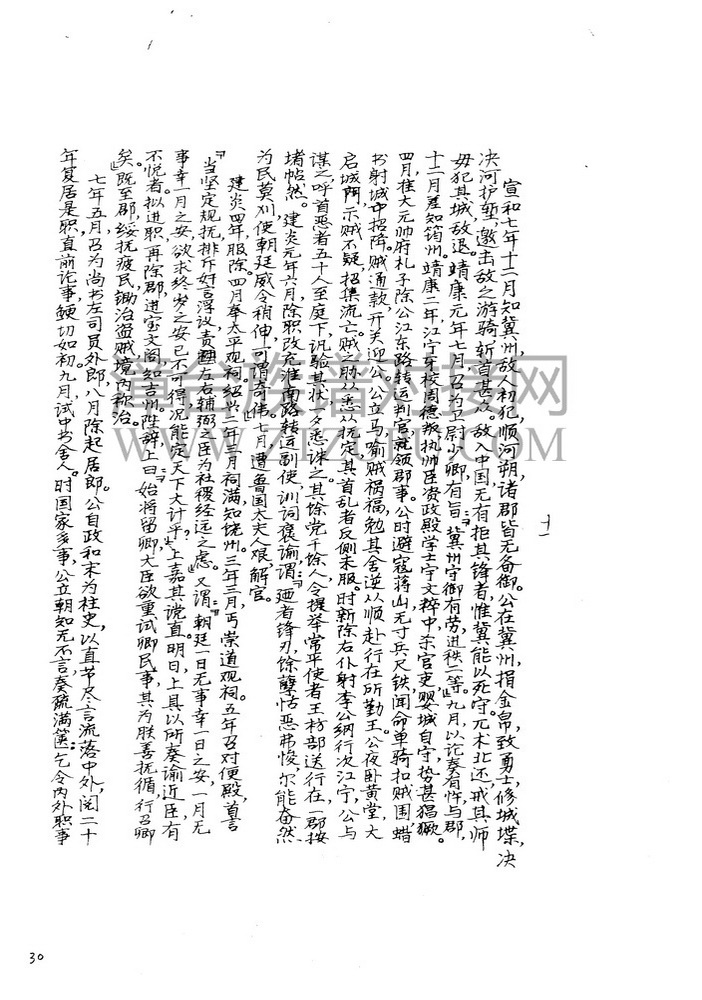 十一
宣和七年十二月知冀州,敌人初犯,顺河朔,诸郡皆无备御。公在冀州,捐金帛,致勇士,修城堞,决
决河护堑,邀击敌之游骑,斩首甚众。敌入中国,无有拒其锋者,惟冀能以死守。兀术北还,戒其师
毋犯其城,敌退。靖康元年七月,召为卫尉少卿,有旨:“冀州守御有劳,进秩二等。”九月,以论奏有忤与郡,
十二月差知筠州。靖康二年,江宁军校周德叛,执帅臣资政殿学士宇文粹中,杀官吏,婴城自守,势甚猖獗。
四月,准大元帅府札子除公江东路转运判官,就领郡事。公时避寇蒋山,无寸兵尺铁,闻命单骑扣贼围,蜡
书射城中招降。贼通款,开关迎公。公立马喻贼祸福,勉其舍逆从顺,赴行在所勤王。公夜卧黄堂,大
启城闸,示贼不疑,招集流亡,贼
抚定。其首乱者反侧未服。时新除右仆射李公纲行次江宁,公与
谋之,呼首恶者五十人至庭下,讯验其状,一夕悉诛之。其馀党千馀人,令提举常平使者王枋部送行在,一郡按
堵帖然。建炎元年六月,除职改充淮南路转运副使,训词褒谕,谓:“乃者锋刃馀孽,怙恶弗悛,尔能奋然
为民莫刈,使朝廷威令稍伸,可谓奇伟。”七月,遭鲁国太夫人艰,解官。
建炎四年,服除。四月奉太平观祠。绍兴二年三月祠满,知饶州。三年三月丐崇道观祠。五年召对便殿,首言
“当坚定规抚,排斥奸言浮议,责
左右辅弼之臣为社稷经远之虑。”又谓:“朝廷一日无事,幸一日之安,一月无
事,幸一月之安,欲求终岁之安已不可得,况能定天下大计乎?”上嘉其谠直。明日,上具以所奏谕近臣,有
不悦者,拟进职,再除郡,进宝文阁,知吉州。陛辞,上曰:“始将留卿,大臣欲重试卿民事,其为朕善抚循,行召卿
矣。”既至郡,绥抚疲民,锄治盗贼,境内称治。
七年五月,召为尚书左司员外郎,八月除起居郎。公自政和末为柱史,以直节尽言流落中外,阅二十
年复居是职,直前论事,鲠切如初。九月,试中书舍人。时国家多事,公立朝知无不言,奏疏满箧:乞令内外职事
30